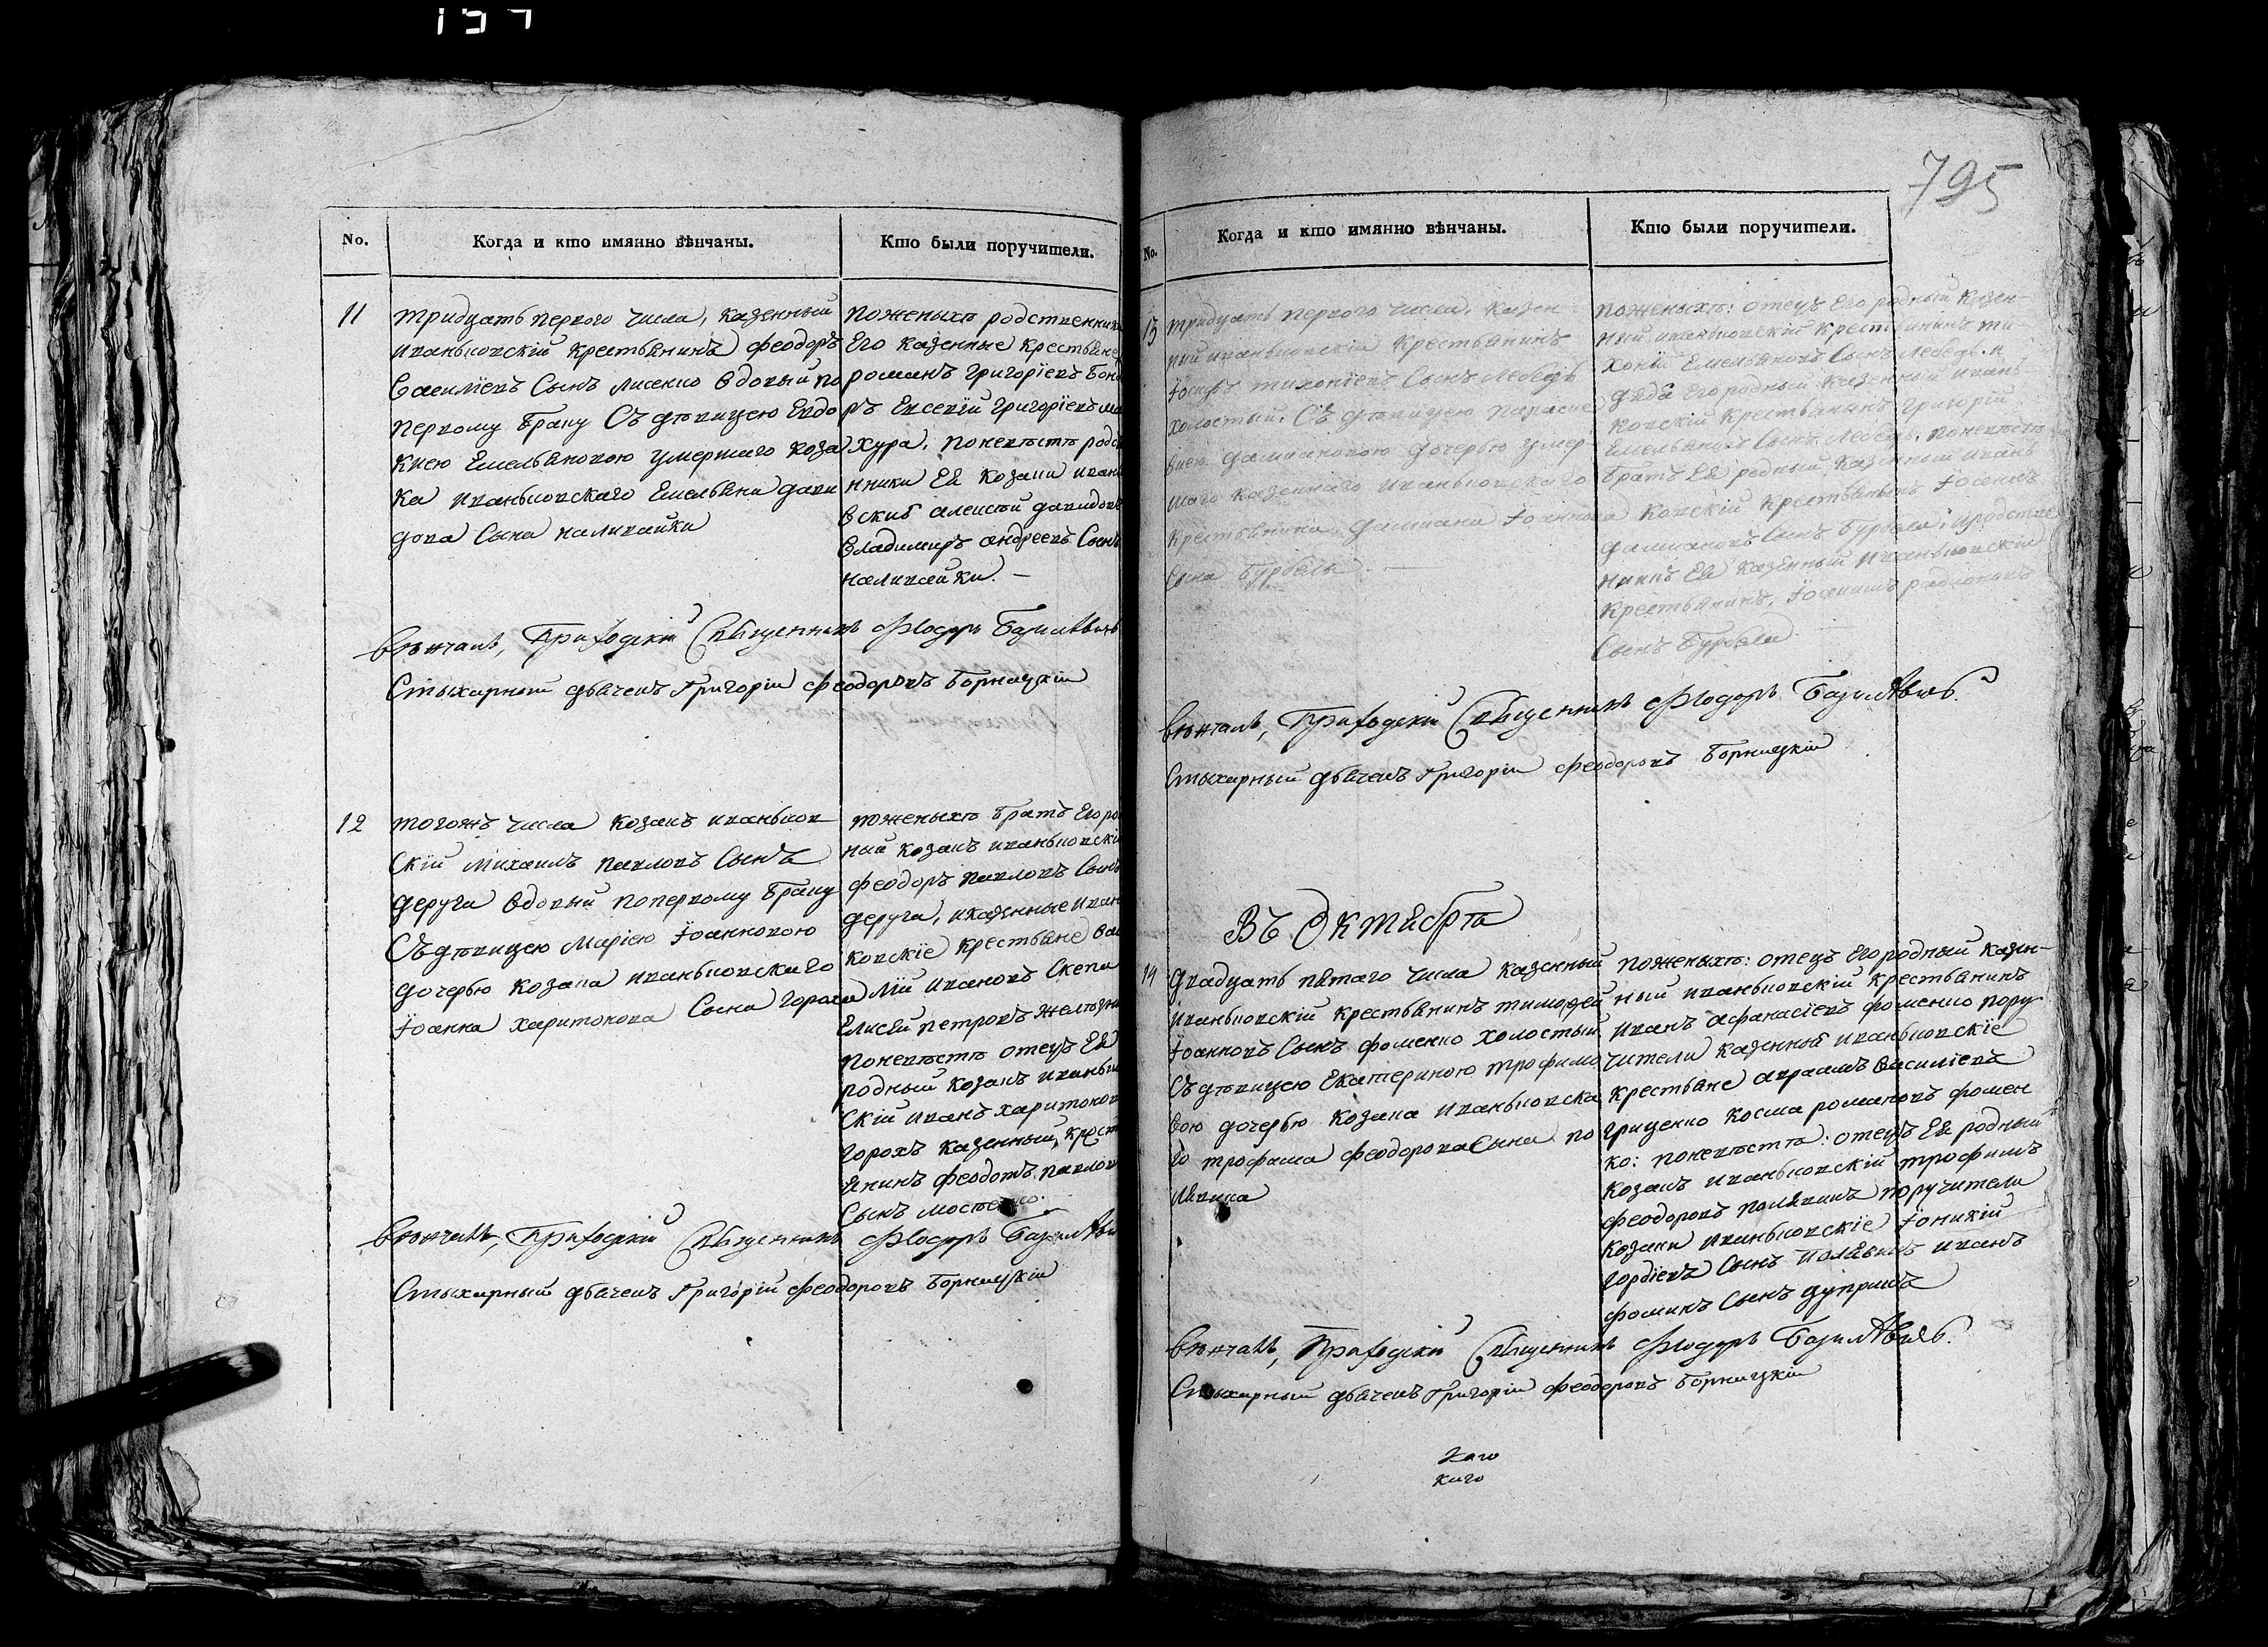 795
No.
Когда и кто имянно вѣнчаны.
Кто были поручители.
11
тридцать первого числа, казенный
иваньковскій крестьянинъ феодоръ
василіевъ Сынъ лисенко вдовый по
первому браку Съ дѣвицею Евдо
киею Емельяновою умершаго коза
ка иваньковскаго Емельяна дави
дова Сына наливайки
поженихѣ родственники
Его казенные крестьяне
романъ григоріевъ
Евсевій григоріевъ
хура, поневѣстѣ
нники Ея козаки
алексѣй давидовъ
владимиръ андреевъ Сынъ
наливайки.
вѣнчалъ, Приходскій Священникъ Фѣодоръ Базилѣвичъ
Стихарный дьячекъ Григорій феодоровъ Борницкій
12
тогожъ числа козакъ иваньков
скій михаилъ павловъ Сынъ
деруга вдовый попервому браку
Съ дѣвицею Маріею Іоанновою
дочерью козака иваньковскаго
Іоанна харитонова Сына гороха
поженихѣ братъ Его ро
ний козакъ иваньковскій
феодоръ павловъ Сынъ
деруга, иказенные иван
ковскіе крестьяне ва
лій ивановъ Скепа
Елисей петровъ
поневѣстѣ отецъ Ея
родный козакъ иваньк
скій иванъ харитонов
горохъ казенный крест
янинъ феодотъ павлов
Сынъ
вѣнчалъ, Приходскій Священникъ Фѣодоръ Базилѣви
Стихарный дьячекъ Григорій феодоровъ Борницкій
No.
Когда и кто имянно вѣнчаны.
Кто были поручители.
13
тридцать первого числа, казен
ний иваньковскій крестьянинъ
Іосифъ тихоніевъ Сынъ лебедь
холостый, Съ дѣвицею параске
виею даміановою дочерью умер
шаго казеннаго иваньковскаго
крестьянина даміана Іоаннова
Сына Бурбели
поженихѣ: отецъ Его родный казен
ний иваньковскій крестьянинъ ти
хоній Емельяновъ Сынъ лебедь. и
дядя Его родный казенный ивань
ковскій крестьянинъ григорій
Емельяновъ Сынъ лебедь, поневѣстѣ
братъ Ея родный, казенный ивань
ковскій крестьянинъ Іоаннъ
даміановъ Сынъ Бурбела, иродстве
никъ Ея казенный иваньковскій
крестьянинъ, Іоакимъ радіоновъ
Сынъ Бурбела
вѣнчалъ, Приходскій Священникъ Фѣодоръ Базилѣвичъ.
Стихарный дьячекъ Григорій феодоровъ Борницкій
Въ Октябрѣ
14
двадцать пятаго числа казенный
иваньковскій крестьянинъ тимофей
Іоанновъ Сынъ фоменко холостый
Съ дѣвицею Екатериною трофимо
вою дочерью козака иваньковска
го трофима феодорова Сына по
лякика
поженихѣ: отецъ Его родный казен
ный иваньковскій крестьянинъ
иванъ афанасіевъ фоменко пору
чители казенный иваньковскіе
крестьяне аврамъ василіевъ
гриценко косма романовъ фомен
ко: поневѣстѣ: отецъ Ея родный
козакъ иваньковскій трофимъ
феодоровъ полякикъ поручители
козаки иваньковскіе Іоникій
гордіевъ Сынъ иванъ
фоминъ Сынъ
вѣнчалъ, Приходскій Священникъ Фѣодоръ Базилѣвичъ.
Стихарный дьячекъ Григорій феодоровъ Борницкій
каго